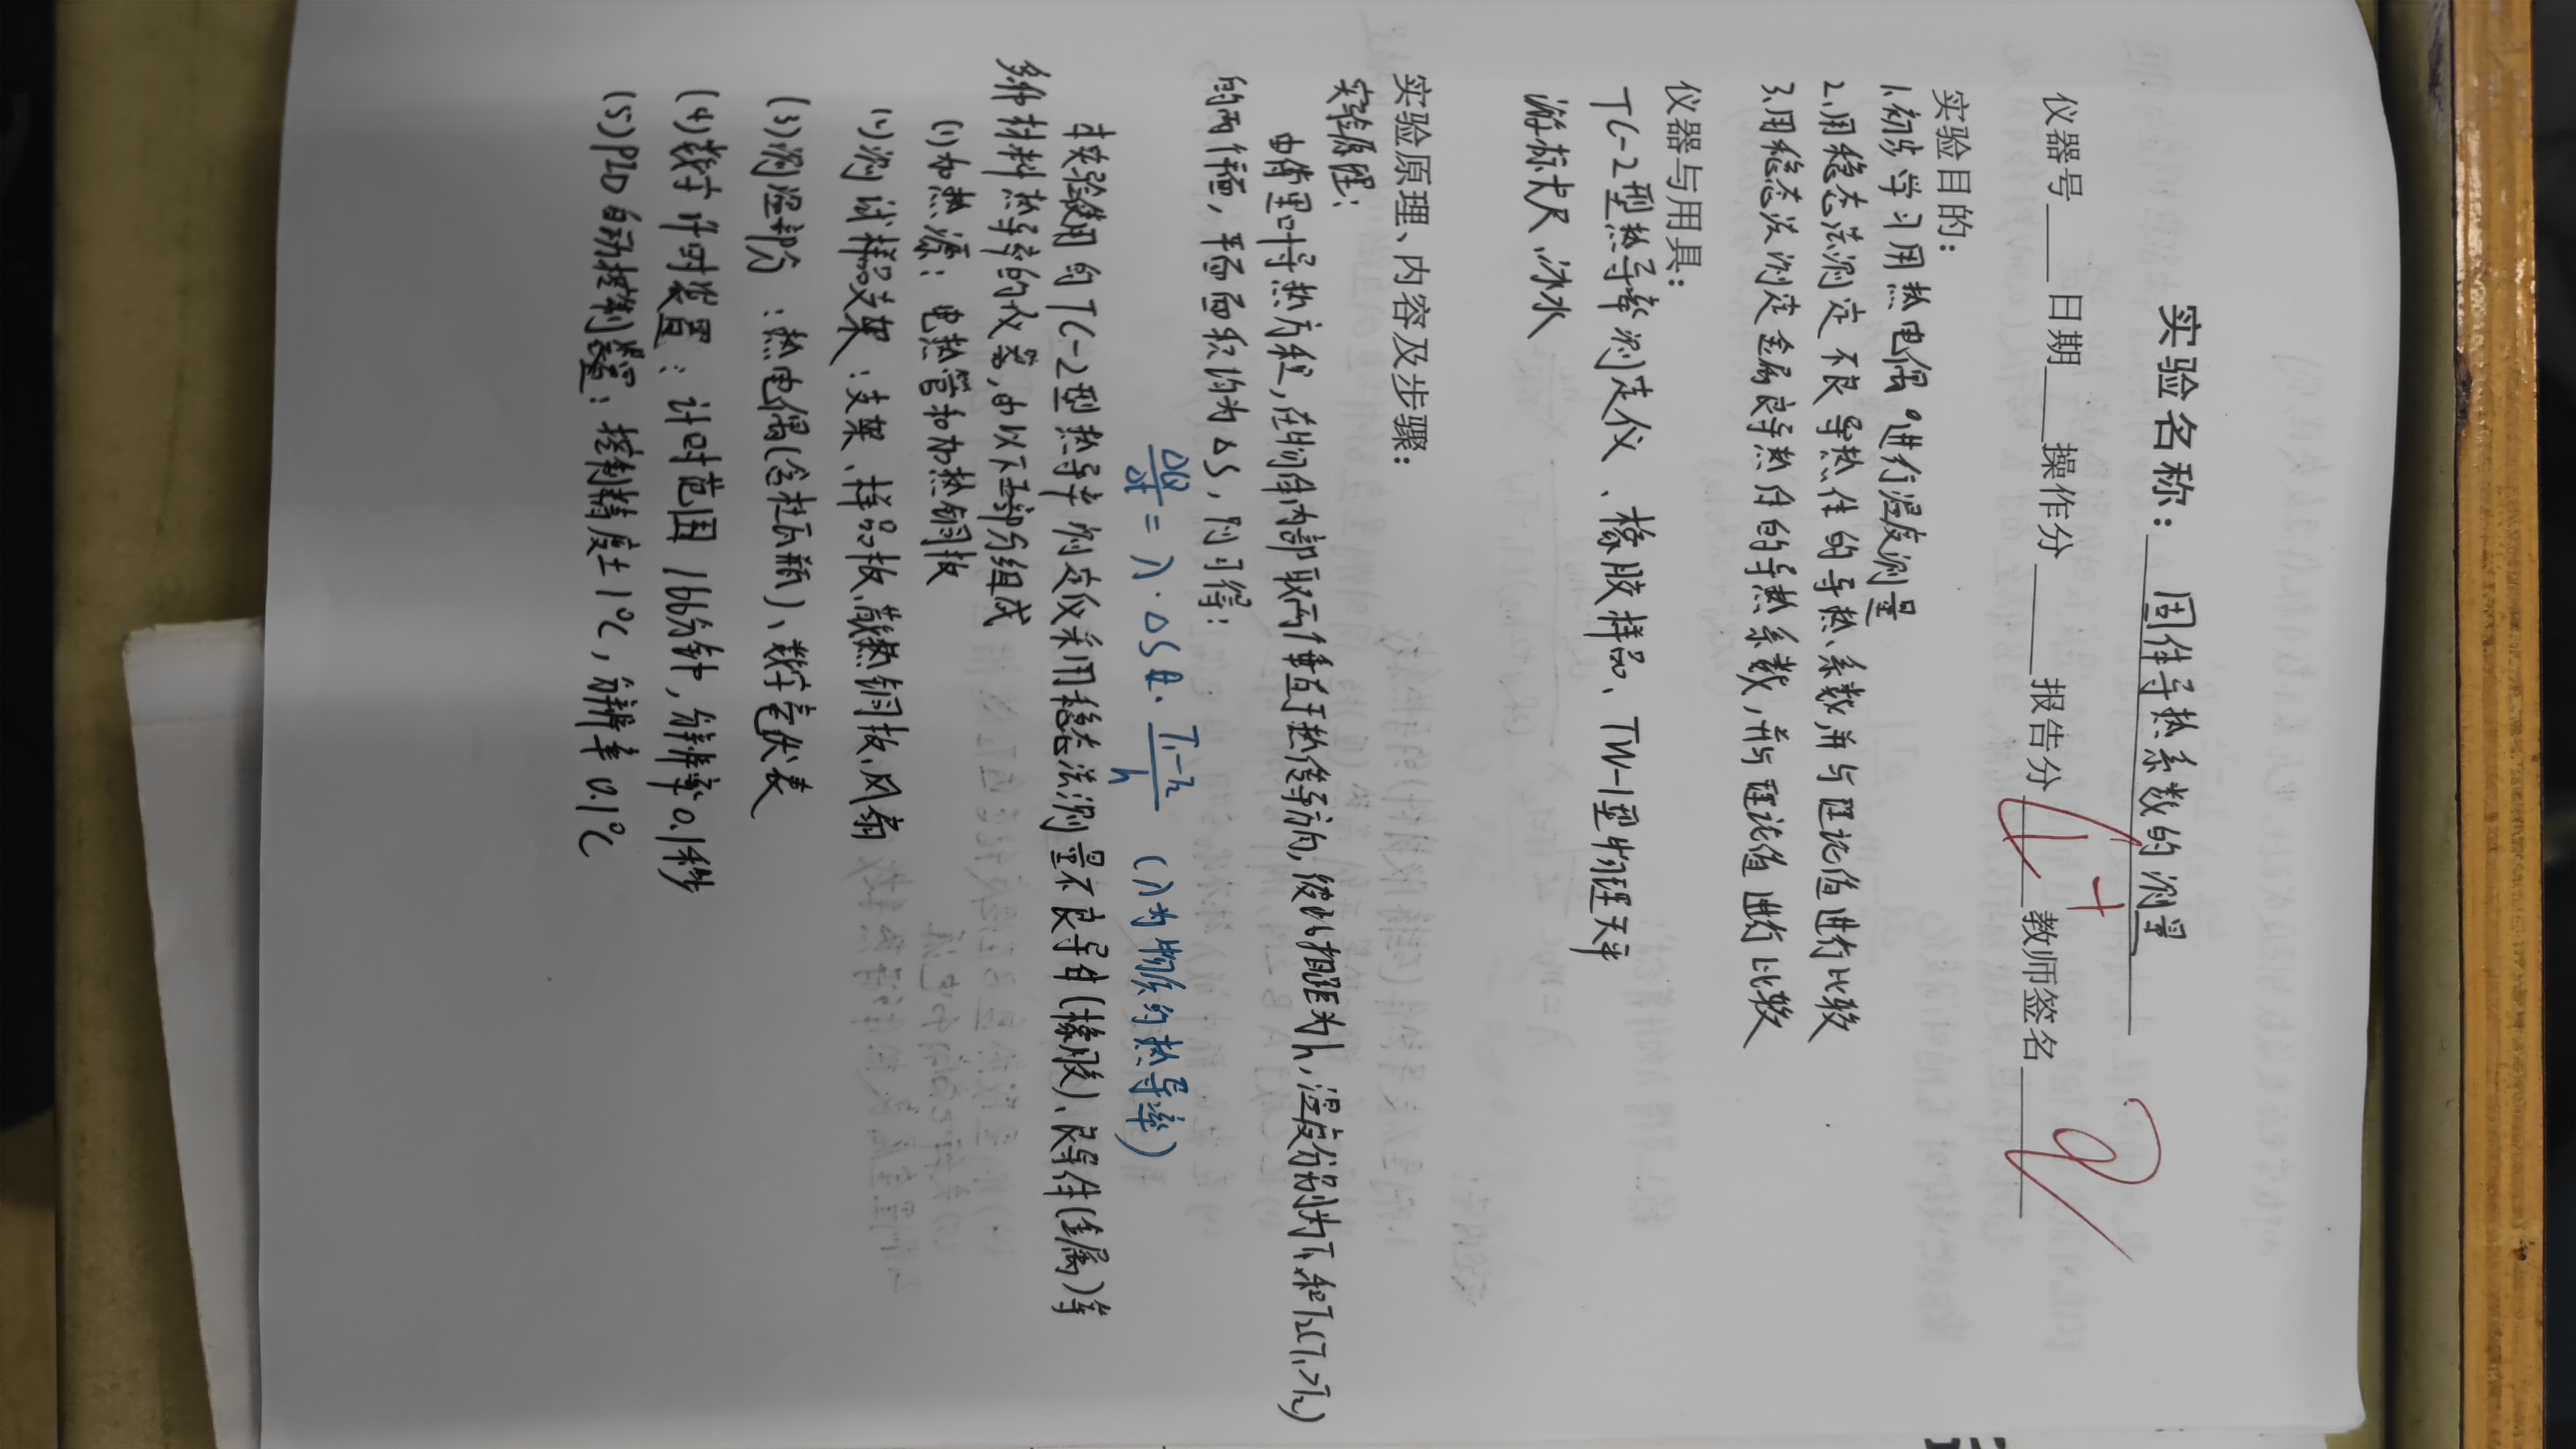 实验名称： 固体导热系数的测量
仪器号 日期 操作分 报告分 教师签名
实验目的：
1.初步学习用热电偶进行温度测量
2.用稳态法测定不良导热体的导热系数,并与理论值进行比较
3.用稳态法测定金属良导热体的导热系数,并与理论值进行比较
仪器与用具：
TC-2型热导率测定仪、橡胶样品、TW-1型物理天平
游标卡尺、冰水
实验原理、内容及步骤：
实验原理：
由傅里叶导热方程,在物体内部取两个垂直于热传导方向,彼此相距为h,温度分别为T₁和T₂(T₁>T₂)
的两个平面,平面面积均为ΔS,则可得：
ΔQ/Δt = λ·ΔS · (T₁-T₂)/h (λ为物质的热导率)
本实验使用的TC-2型热导率测定仪采用稳态法测量不良导体(橡胶)、良导体(金属)等
多种材料热导率的仪器,由以下部分组成
(1)加热源：电热管和加热铜板
(2)测试样品支架：支架、样品板、散热铜板、风扇
(3)测温部分：热电偶(含杜瓦瓶)、数字电压表
(4)数字计时装置：计时范围166分钟,分辨率0.1秒
(5)PID自动控制装置：控制精度±1℃,分辨率0.1℃